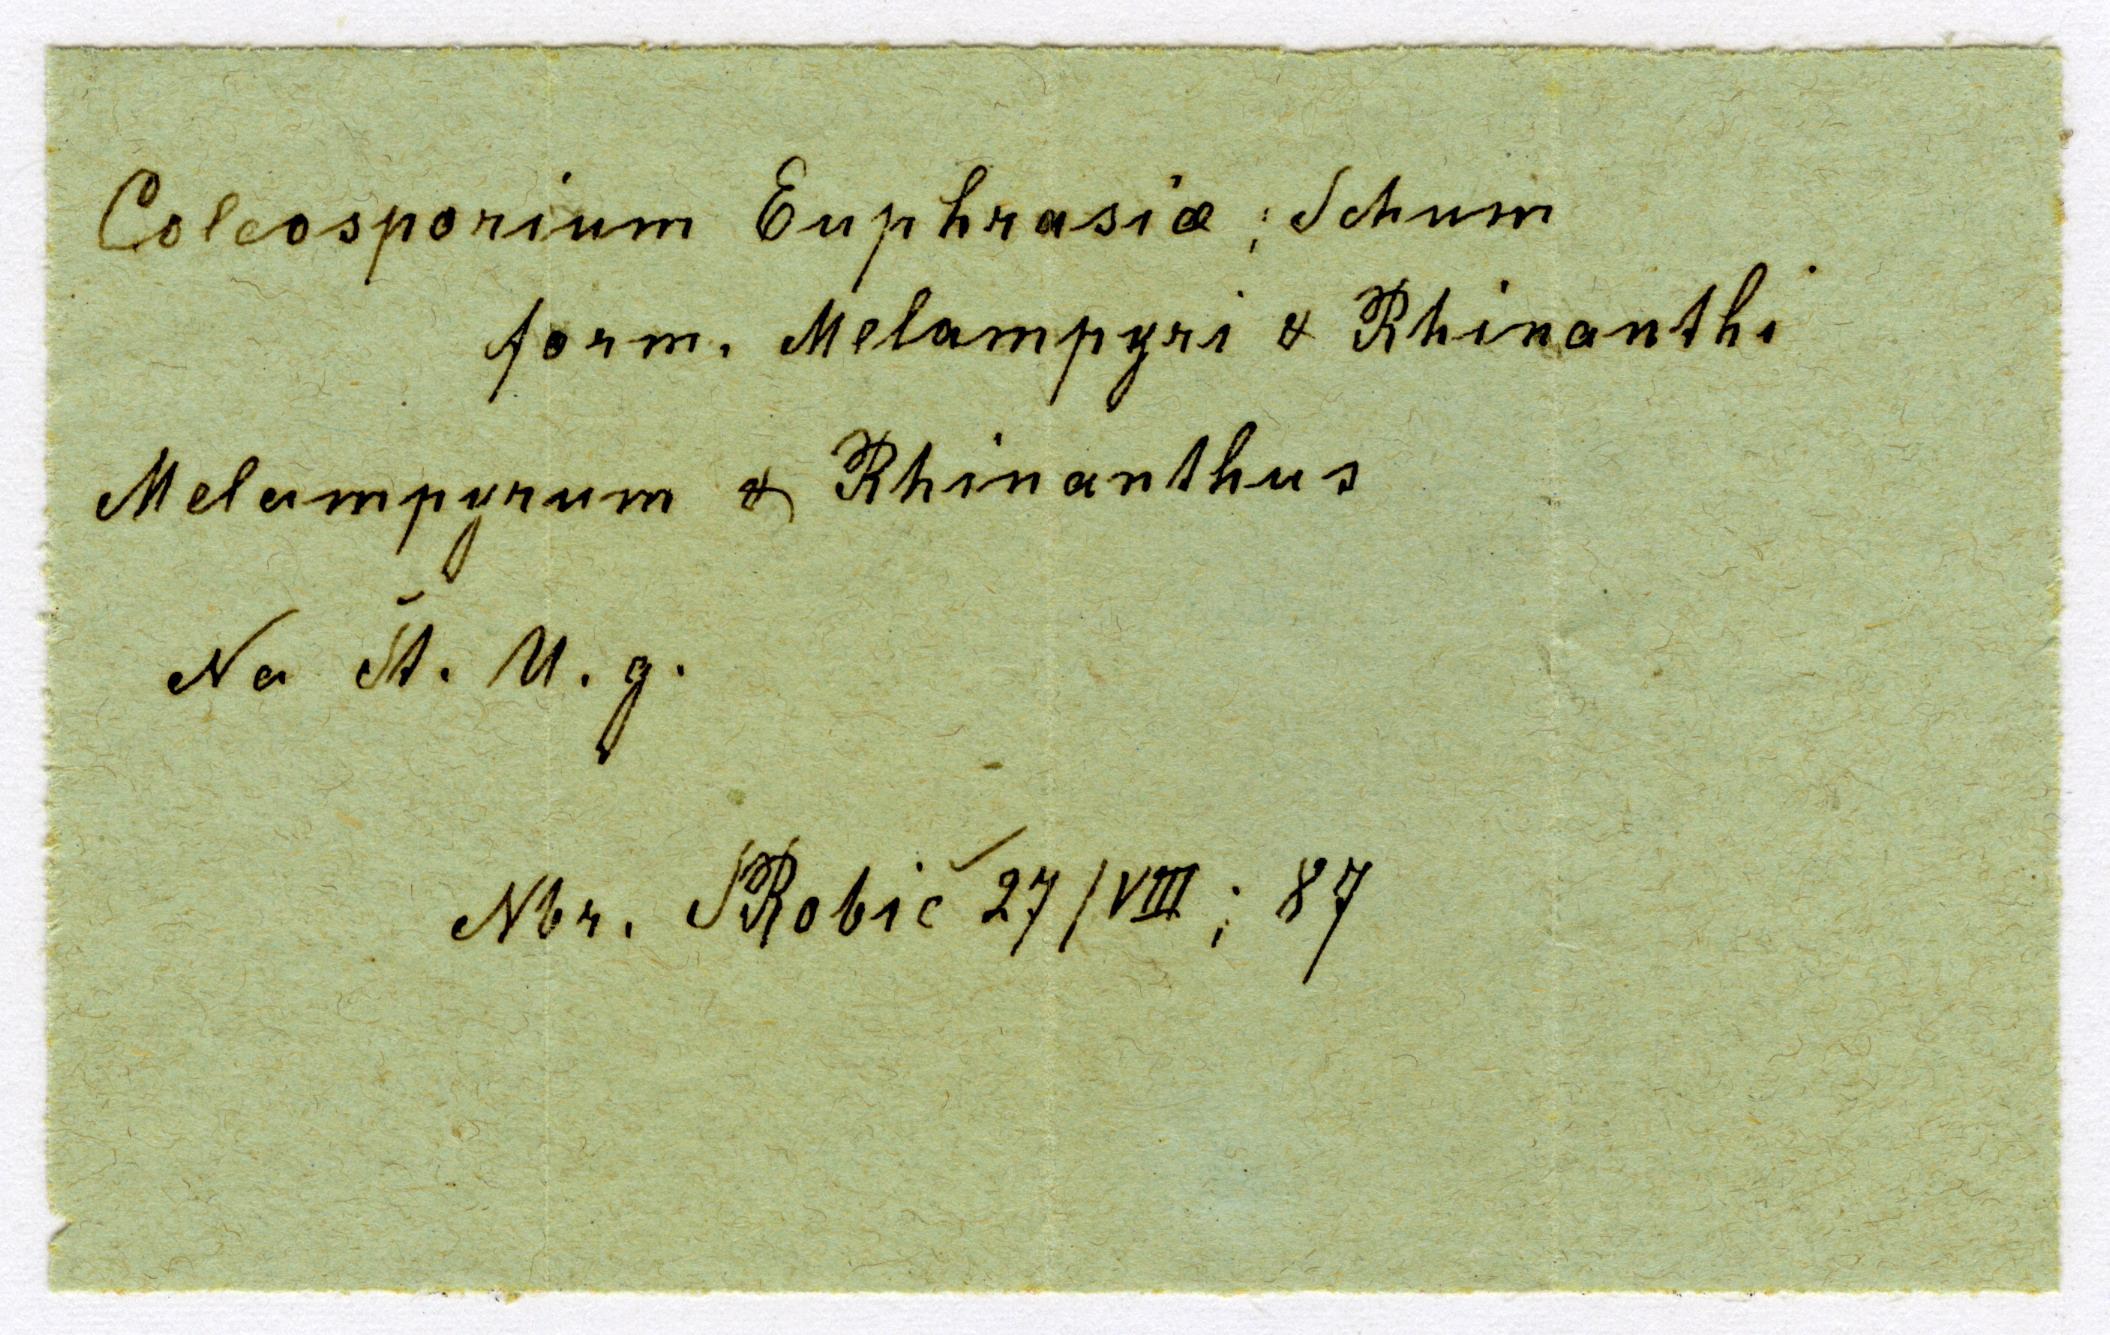 Coleosporium Euphrasiæ; Schum
form. Melampyri & Rhinanthi
Melampyrum & Rhinanthus
Na Št. U. g.
Nbr. SRobič 27/VIII; 87